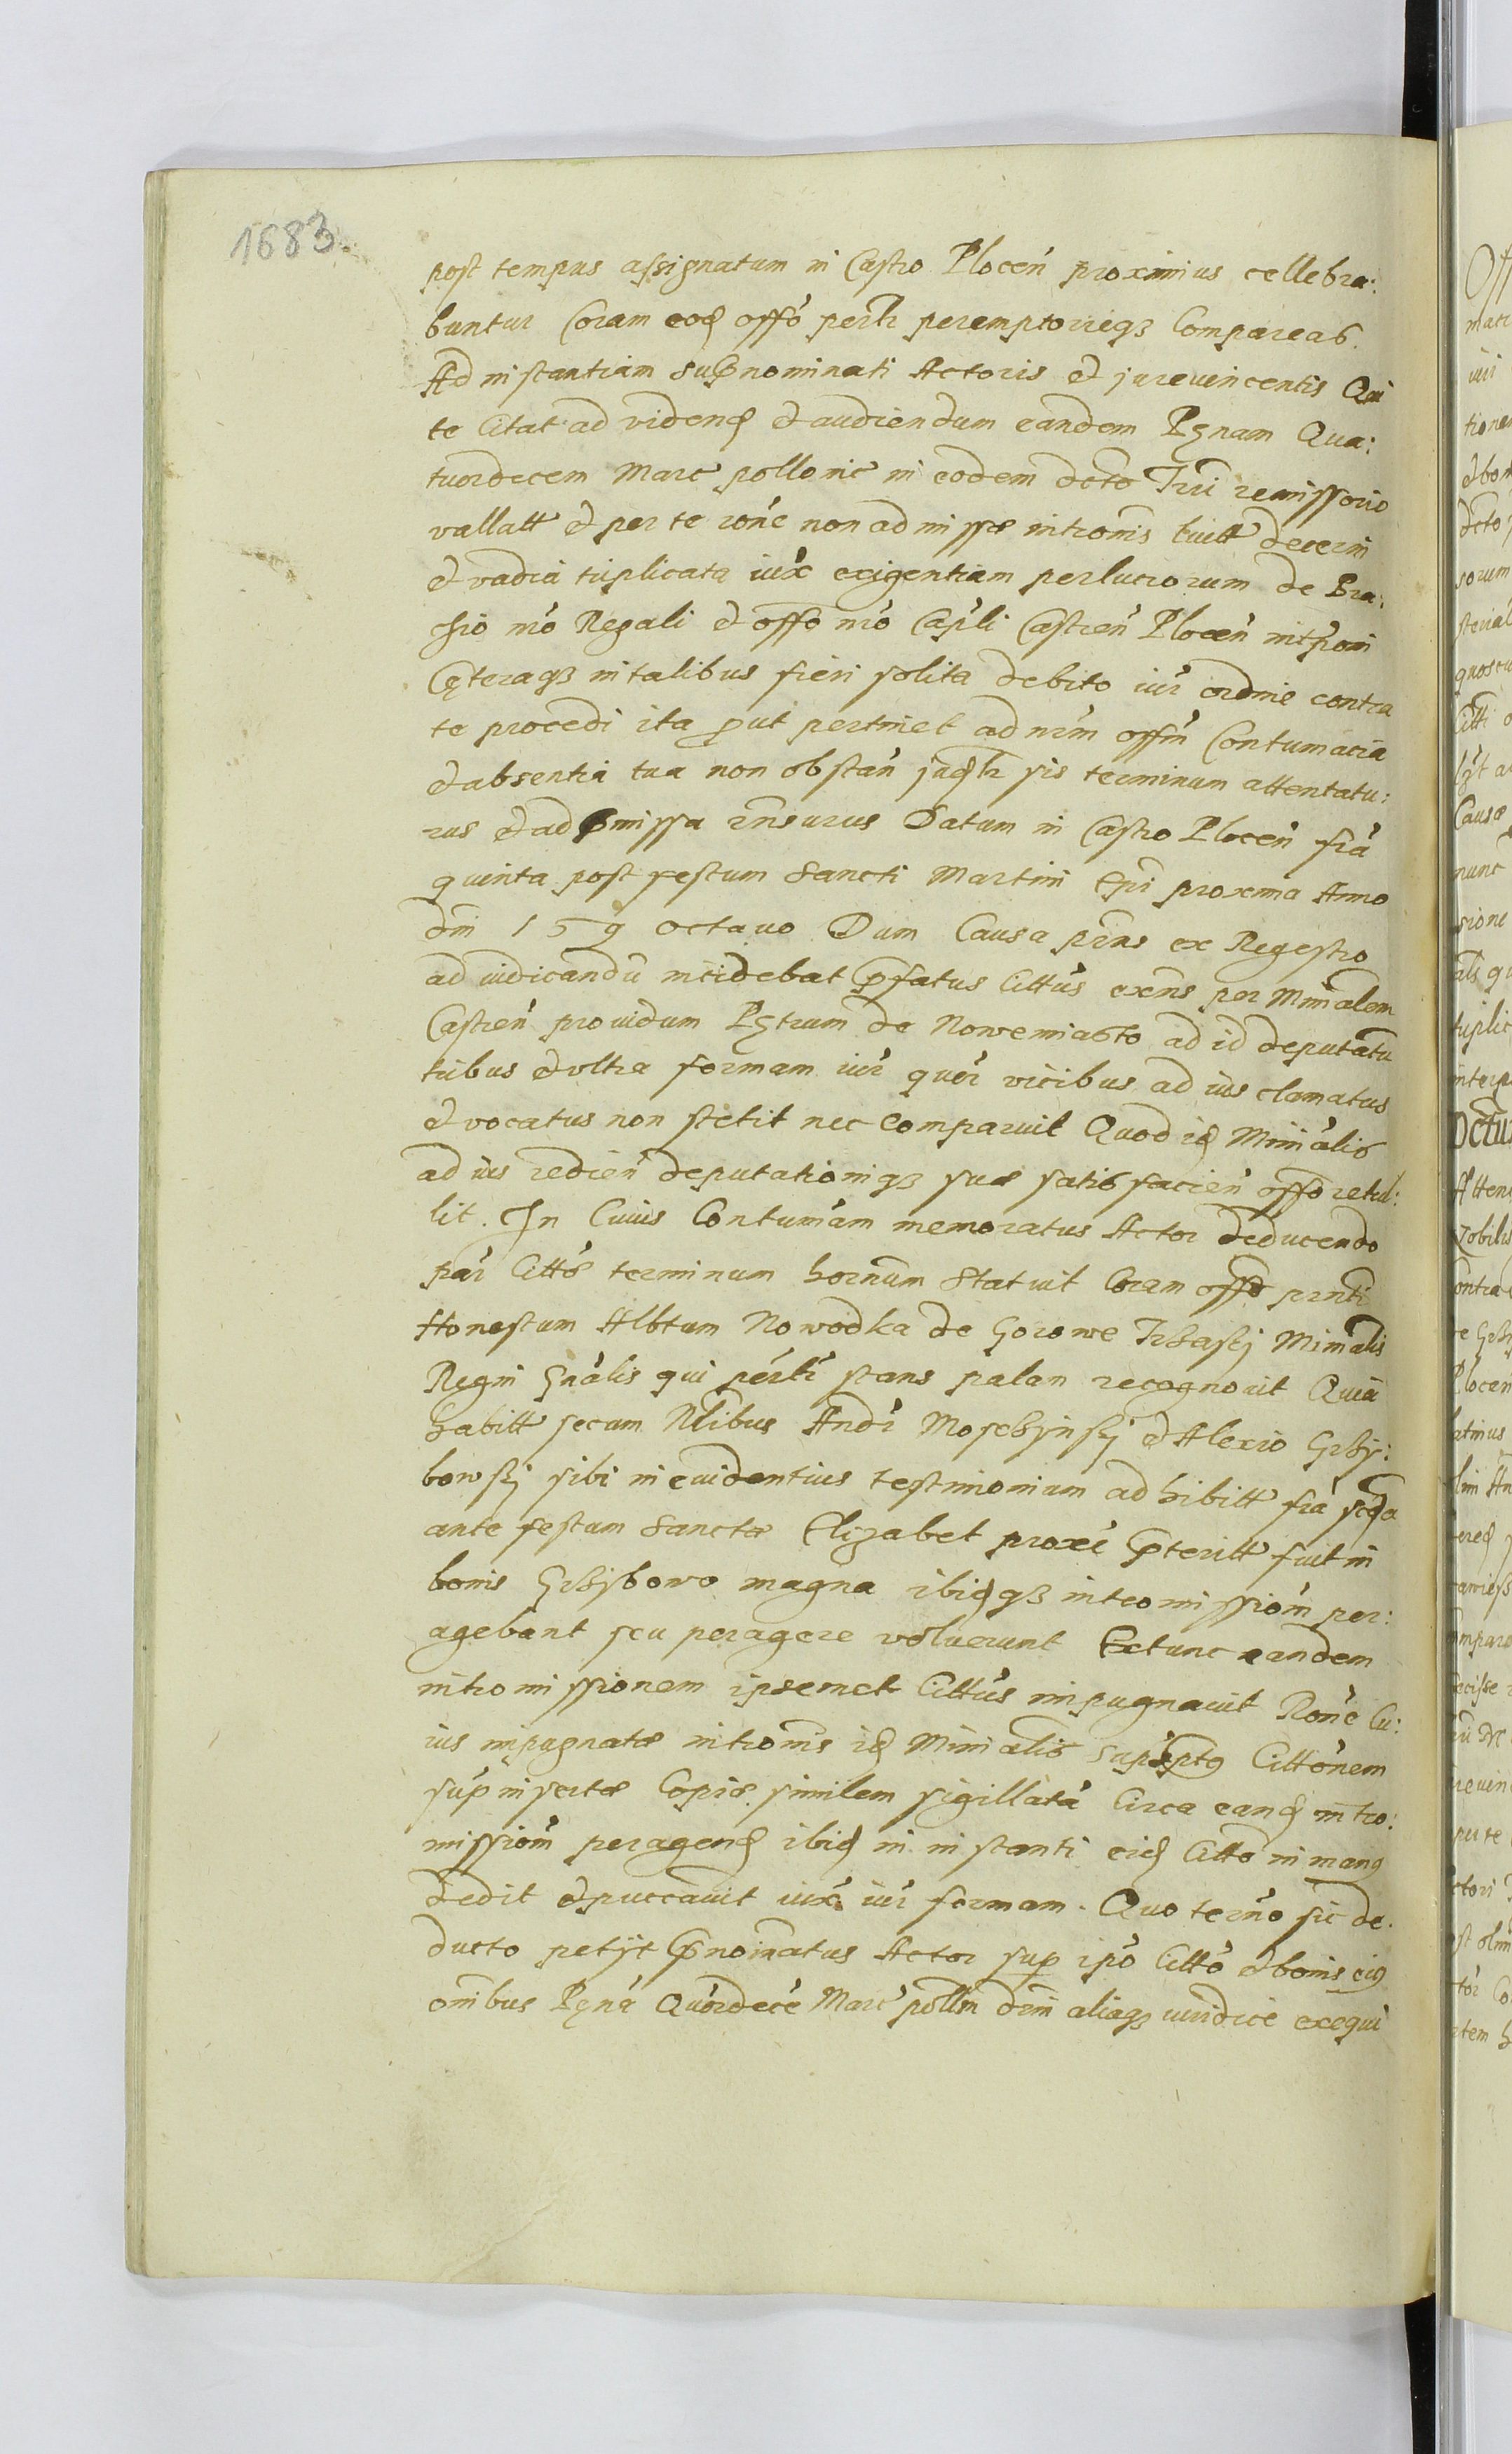 1683.
post tempus assignatum in Castro Plocen proximius cellebra:
buntur Coram eod offo perlr peremptorieqз Compareas.
Ad instantiam supnominati Actoris et jurevincentis Qui
te Citat ad vidend et audiendum eandem Pęnam Qua:
tuordecem Marc pollonic in eodem dcto Trri remissorio
vallatt et per te rone non admissæ intromis luitt decerni
et vadia triplicata iux exigentiam perlucrorum de Bra:
chio mo Regali et offo mo Capli Castren Plocen interponi
Cęteraqз in talibus fieri solita debito iur ordine contra
te procedi ita put pertinet ad nrm offm Contumacia
et absentia tua non obstan judlr sis terminum attentatu:
rus et ad pmissa rnsurus Datum in Castro Plocen fia
quinta post festum Sancti Martini Epi proxima Anno
dni 159 octavo Dum Causa prns ex Regestro
ad iudicandu incidebat pfatus Cittus exens per Minialem
Castren prouidum Pętrum de Nowemiasto ad id deputatu
tribus et vltra formam iur quor vicibus ad ius clamatus
et vocatus non stetit nec Comparuit Quod id Minialis
ad ius redien deputationiqз suæ satisfacien offo retul:
lit. In Cuius Contumam memoratus Actor deducendo
par Citto terminum hornum Statuit Coram offo prnti
Honestum Albtum Nowodka de Gorowe Trzaski Minialis
Regni Gnalis qui perlr stans palam recognouit Quia
habitt secum Nlibus Andr Moschynski et Alexio Grzy:
bowski sibi in euidentius testimonium adhibitt fia scda
ante festum Sanctæ Elizabet proxe pteritt fuit in
bonis Grzybowo magna ibidqз intromissiom per:
agebant seu peragere voluerunt Extunc eandem
intromissionem ipsemet Cittus impugnauit Rone Cu:
ius impugnatæ intromis id Minialis supsptg Cittonem
sup insertæ Copiæ similem sigillata Circa eand intro:
missiom peragend ibid in instanti eid Citto in mang
dedit et puccauit iux iur formam. Quo termo sic de.
ducto petijt pnoinatus Actor sup ipo Citto et bonis eig
omibus Pęna Quordece Marc pollm drni aliaqз iuridice exequi